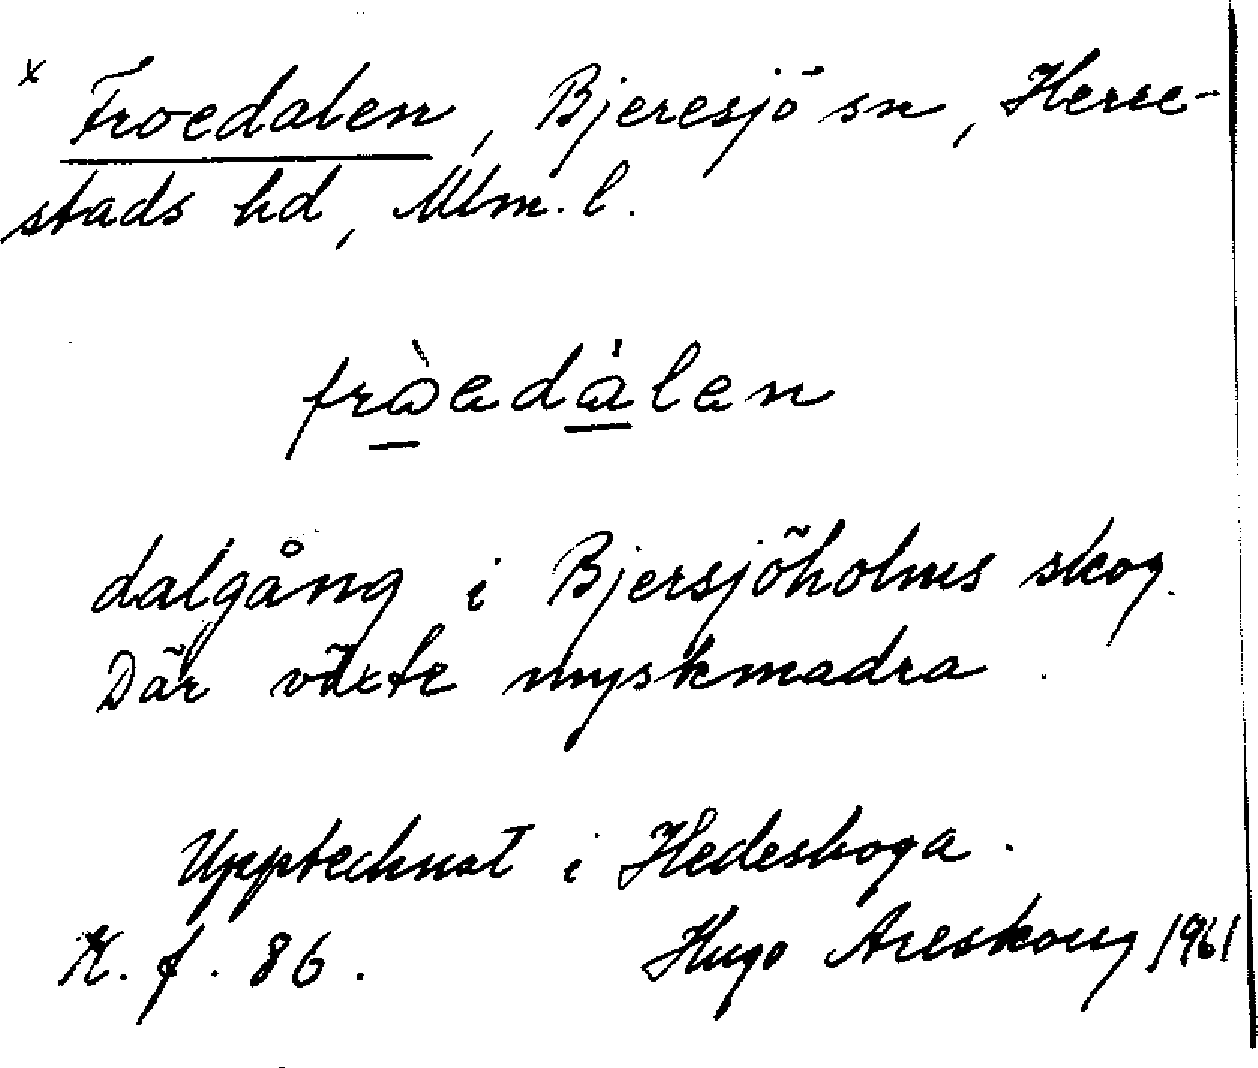 x Froedalen, Bjeresjö sn, Herre-
stads hd, Mlm. l.
fràedálen
dalgång i Bjersjöholms skog.
Där växte myskmadra.
Upptecknat i Hedeskoga.
K. f. 86. Hugo Areskoug 1961